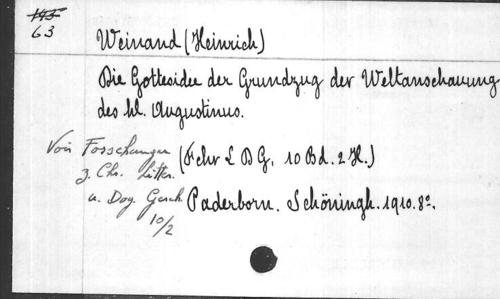 143
63
Weinand (Heinrich)
Die Gottesidee der Grundzug der Weltanschauung
des hl. Augustinus.
Von Forschungen (Fchr L D G. 10 Bd. 2 H.)
z. Chr. Litter.
u. Dog. Gesch. Paderborn. Schöningh. 1910. 8°.
10/2